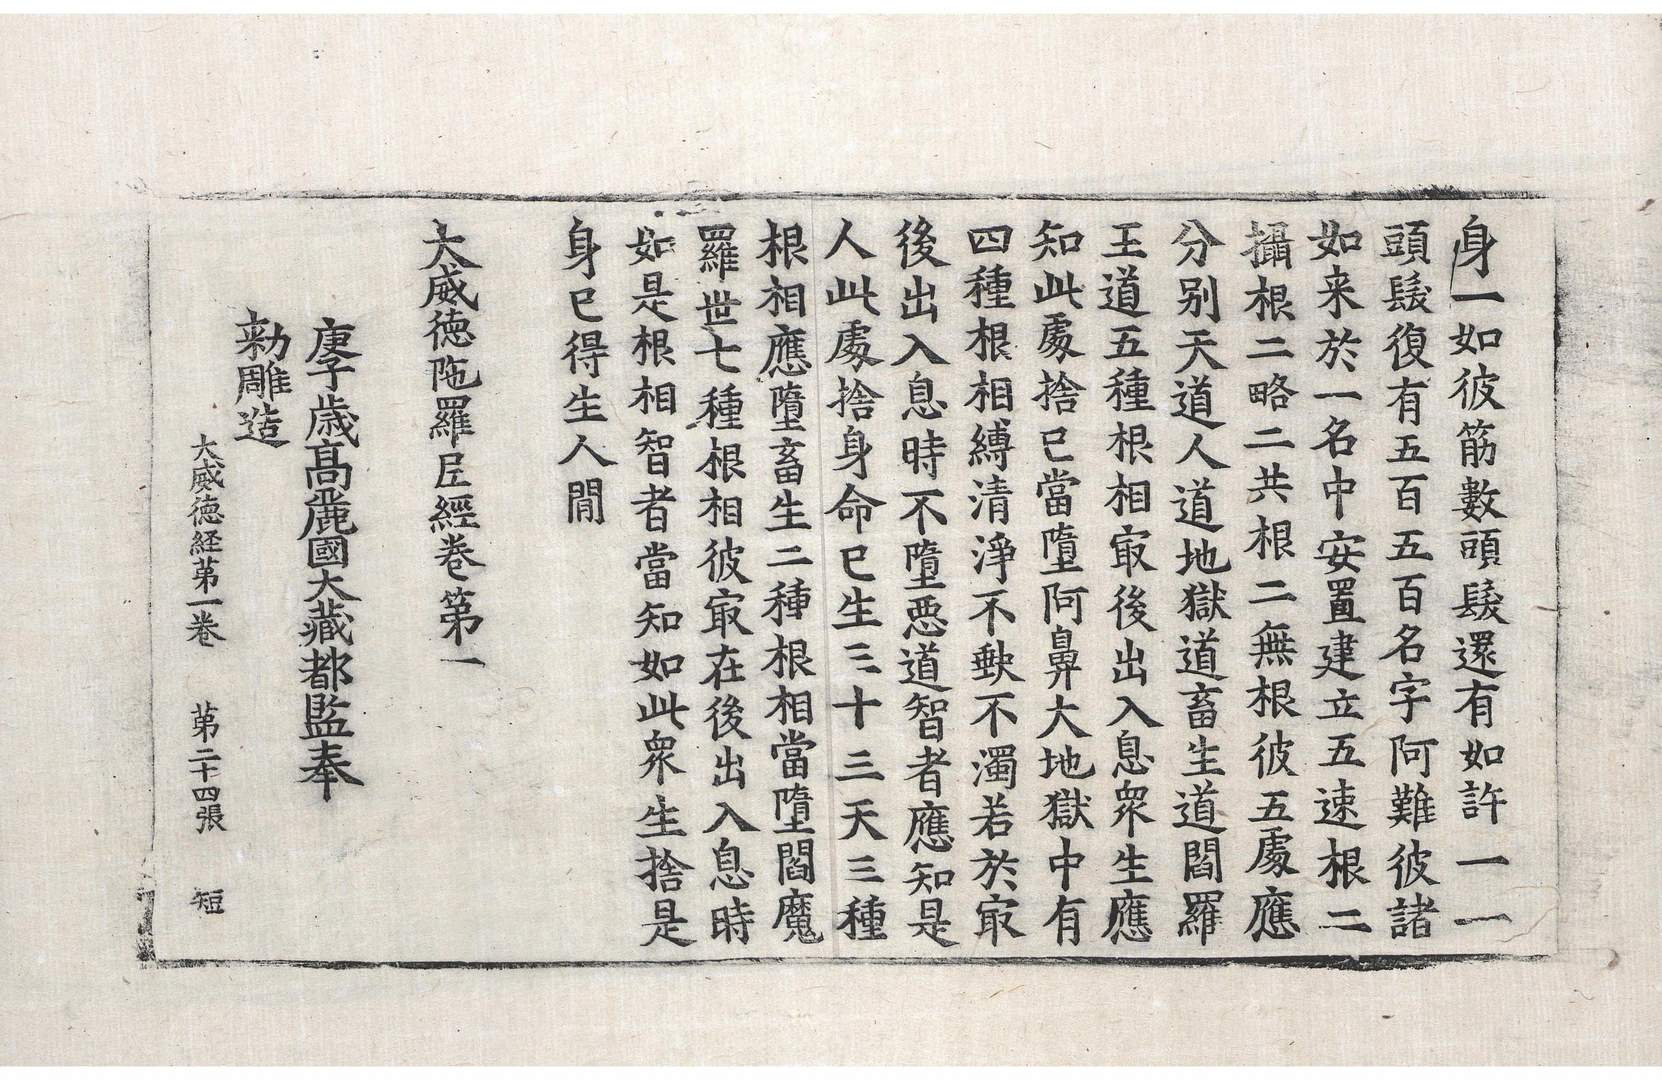 身一如彼筋數頭髮還有如許一一
頭髮復有五百五百名字阿難彼諸
如来於一名中安置建立五速根二
攝根二略二共根二無根彼五處應
分别天道人道地獄道畜生道閻羅
王道五種根相㝡後出入息衆生應
知此處捨已當墮阿鼻大地獄中有
四種根相縛清淨不缺不濁若於㝡
後出入息時不墮惡道智者應知是
人此處捨身命已生三十三天三種
根相應墮畜生二種根相當墮閻魔
羅世七種根相彼㝡在後出入息時
如是根相智者當知如此衆生捨是
身已得生人間
大威德陁羅尼經卷第一
庚子歳高麗國大藏都監奉
勑雕造
大威德経第一卷 第二十四張 短